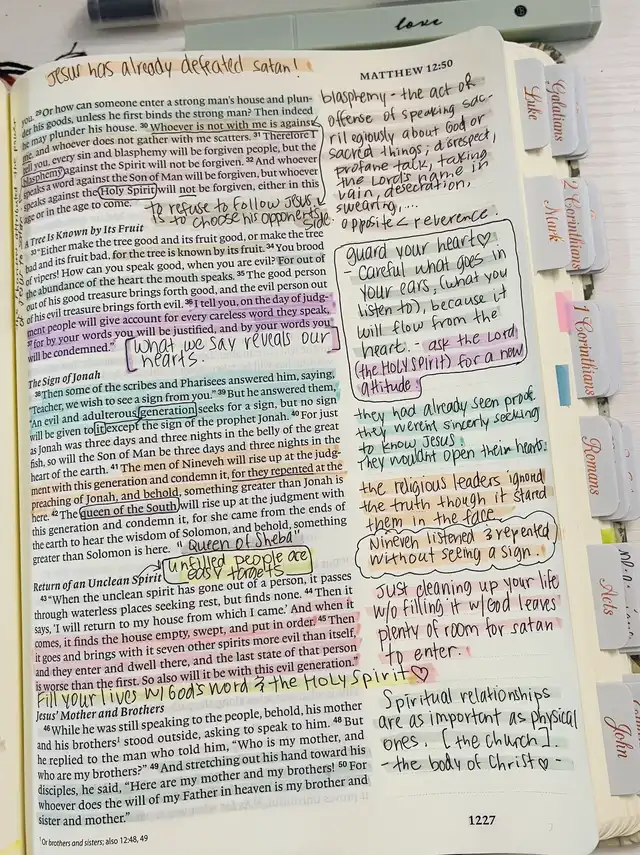 love
Jesus has already defeated satan!
MATTHEW 12:50
you. 29 Or how can someone enter a strong man's house and plun-
der his goods, unless he first binds the strong man? Then indeed
he may plunder his house. 30 Whoever is not with me is against
me, and whoever does not gather with me scatters. 31 Therefore I
tell you, every sin and blasphemy will be forgiven people, but the
blasphemy against the Spirit will not be forgiven. 32 And whoever
speaks a word against the Son of Man will be forgiven, but whoever
speaks against the Holy Spirit will not be forgiven, either in this
age or in the age to come.
to refuse to follow Jesus
is to choose his opponents
side.
A Tree Is Known by Its Fruit
33 "Either make the tree good and its fruit good, or make the tree
bad and its fruit bad, for the tree is known by its fruit. 34 You brood
of vipers! How can you speak good, when you are evil? For out of
the abundance of the heart the mouth speaks. 35 The good person
out of his good treasure brings forth good, and the evil person out
of his evil treasure brings forth evil. 36 I tell you, on the day of judg-
ment people will give account for every careless word they speak,
37 for by your words you will be justified, and by your words you
will be condemned."
[what we say reveals our
hearts.]
The Sign of Jonah
38 Then some of the scribes and Pharisees answered him, saying,
"Teacher, we wish to see a sign from you." 39 But he answered them,
"An evil and adulterous generation seeks for a sign, but no sign
will be given to it except the sign of the prophet Jonah. 40 For just
as Jonah was three days and three nights in the belly of the great
fish, so will the Son of Man be three days and three nights in the
heart of the earth. 41 The men of Nineveh will rise up at the judg-
ment with this generation and condemn it, for they repented at the
preaching of Jonah, and behold, something greater than Jonah is
here. 42 The queen of the South will rise up at the judgment with
this generation and condemn it, for she came from the ends of
the earth to hear the wisdom of Solomon, and behold, something
greater than Solomon is here.
"Queen of Sheba"
unfilled people are
easy targets
Return of an Unclean Spirit
43 "When the unclean spirit has gone out of a person, it passes
through waterless places seeking rest, but finds none. 44 Then it
says, 'I will return to my house from which I came.' And when it
comes, it finds the house empty, swept, and put in order. 45 Then
it goes and brings with it seven other spirits more evil than itself,
and they enter and dwell there, and the last state of that person
is worse than the first. So also will it be with this evil generation."
Fill your lives w/ God's word & the HOLY Spirit♡
Jesus' Mother and Brothers
46 While he was still speaking to the people, behold, his mother
and his brothers1 stood outside, asking to speak to him. 48 But
he replied to the man who told him, "Who is my mother, and
who are my brothers?" 49 And stretching out his hand toward his
disciples, he said, "Here are my mother and my brothers! 50 For
whoever does the will of my Father in heaven is my brother and
sister and mother."
1 Or brothers and sisters; also 12:48, 49
blasphemy - the act of
offense of speaking sac-
rilegiously about God or
sacred things; disrespect,
profane talk, taking
the Lord's name in
vain, desecration,
swearing,...
opposite < reverence.
guard your heart♡
- careful what goes in
your ears, (what you
listen to), because it
will flow from the
heart. - ask the Lord
(the HOLY SPIRIT) for a new
attitude!
they had already seen proof
they werent sincerly seeking
to know Jesus.
They wouldnt open their hearts.
the religious leaders ignord
the truth though it stard
them in the face
Nineveh listened & repented
without seeing a sign.
Just cleaning up your life
w/o filling it w/God leaves
plenty of room for satan
to enter.
Spiritual relationships
are as important as physical
ones. [the church].
- the body of Christ♡ -
1227
Luke
Galatians
Mark
2 Corinthians
1 Corinthians
Romans
Acts
John